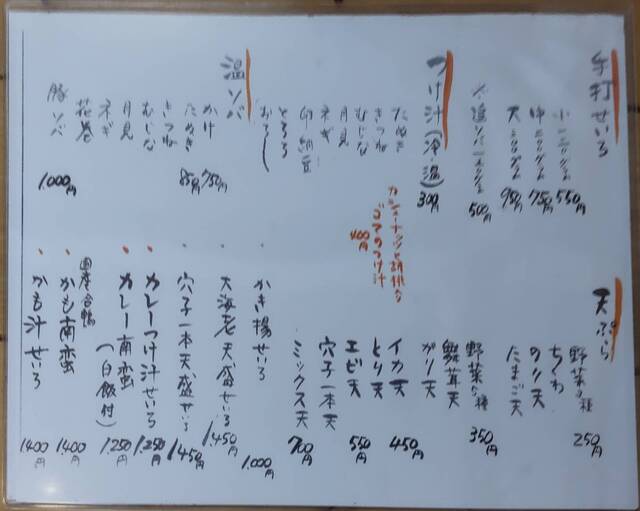 手打せいろ
小 550円
中 750円
大 950円
※追ソバ 500円
つけ汁(冷・温) 300円
たぬき
きつね
むじな
月見
ネギ
卯納豆
とろろ
おろし
カシューナッツと胡桃な
ゴマのつけ汁
400円
温ソバ
かけ 750円
たぬき 850円
きつね
むじな
月見
ネギ
花巻
豚ソバ 1,000円
天ぷら
野菜3種 250円
ちくわ
のり天
たまご天
野菜5種 350円
舞茸天
ガリ天
イカ天 450円
とり天
エビ天 550円
穴子一本天
ミックス天 700円
・かき揚せいろ 1,000円
・大海老天盛せいろ 1,450円
・穴子一本天盛せいろ 1,450円
・カレーつけ汁せいろ 1,250円
・カレー南蛮 1,250円
(白飯付)
国産合鴨
・かも南蛮 1,400円
・かも汁せいろ 1,400円